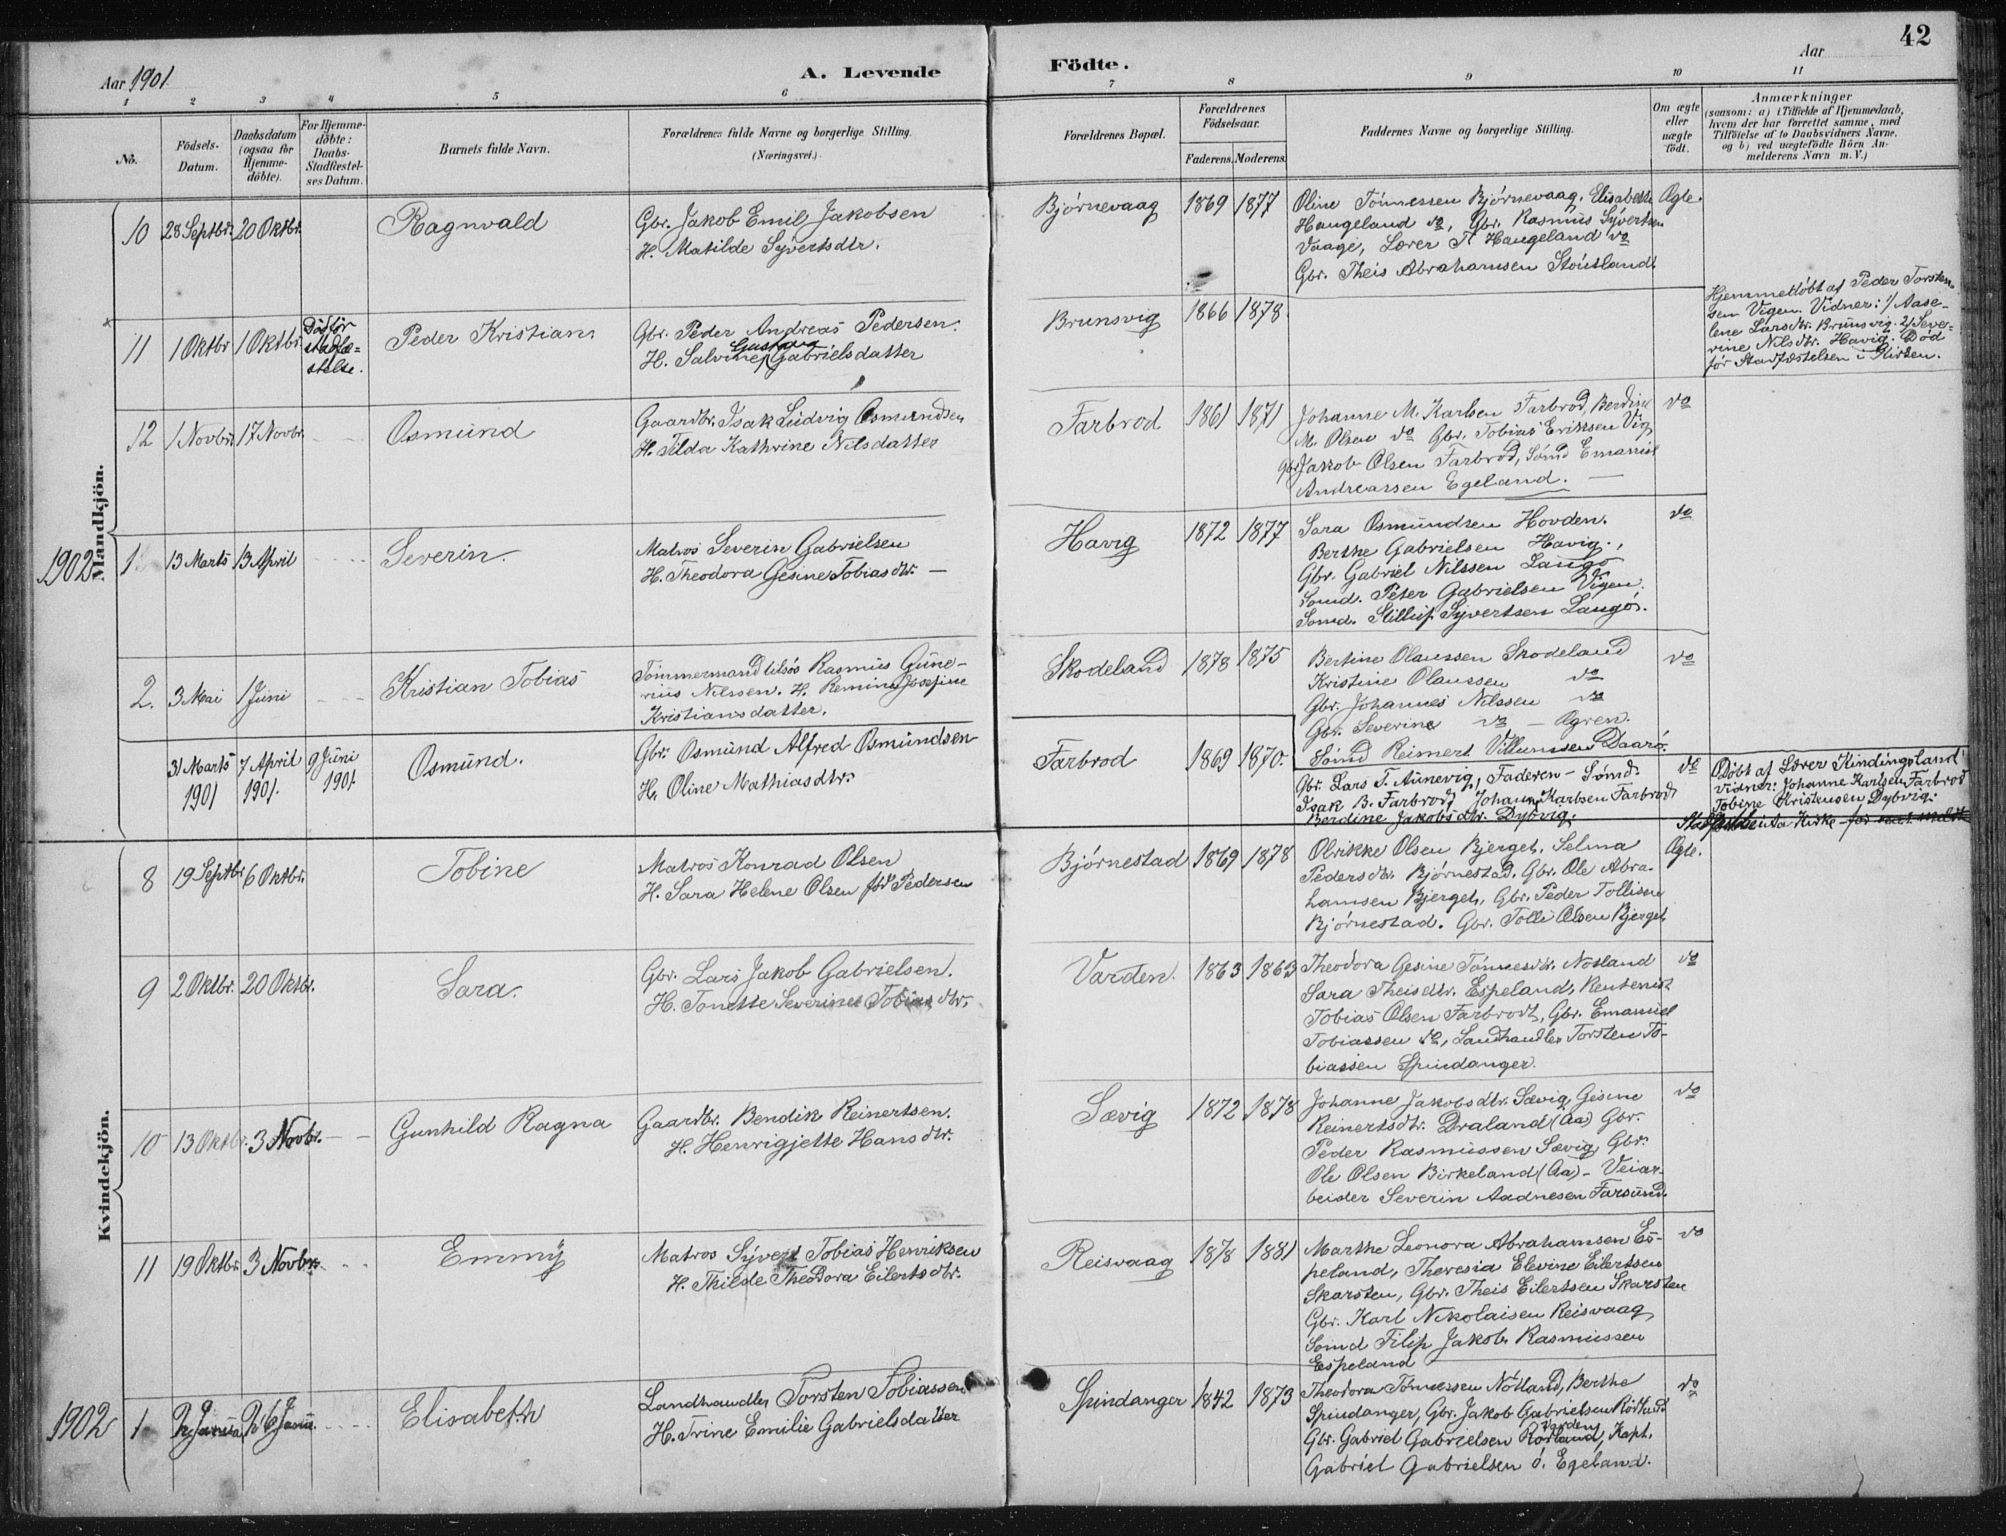 42
Aar 1901.
A. Levende
Födte.
Aar
1 2 3 4 5 6 7 8 9 10 11
No.
Födsels-
Datum.
Daabsdatum
(ogsaa for
Hjemme-
döbte).
For Hjemme-
döbte:
Daabs-
Stadfæstel-
ses Datum.
Barnets fulde Navn.
Forældrenes fulde Navne og borgerlige Stilling.
(Næringsvei.)
Forældrenes Bopæl.
Forældrenes
Födselsaar.
Faderens. Moderens.
Faddernes Navne og borgerlige Stilling.
Om ægte
eller
uægte
födt.
Anmærkninger
(saasom: a) i Tilfælde af Hjemmedaab,
hvem der har forrettet samme, med
Tilföielse af to Daabsvidners Navne,
og b) ved uægtefödte Börn An-
melderens Navn m. V.)
Mandkjön.
10 28 Septbr. 20 Oktbr. Ragnvald
Gbr. Jakob Emil Jakobsen
H. Matilde Syvertsdtr.
Bjørnevaag 1869 1877
Oline Tönnessen Bjørnevaag, Elisabeth
Haugeland do, Gbr. Rasmus Syvertsen
Vaage, Lærer T. Haugeland do
Gbr. Theis Abrahamsen Stöutland.
Ægte.
11 1 Oktbr 1 Oktbr.
Död för
stadfæ-
stelse.
Peder Kristian
Gbr. Peder Andreas Pedersen.
Gustava
H. Salvine Gabrielsdatter
Brunsvig 1866 1878
Hjemmedöbt af Peder Torsten-
sen Vigen. Vidner: 1/ Aase-
lene Larsdtr. Brunsvig. 2/ Seve-
rine Nilsdtr. Havig. Död
för Stadfæstelsen i Kirken.
12 1 Novbr. 17 Novbr. Osmund
Gaardbr. Isak Ludvig Osmundsen
H. Tilda Kathrine Nilsdatter
Farbrod 1861 1871
Johanne M. Karlsen Farbrod, Berdine
M. Olsen do Gbr. Tobias Eriksen Vig
Gbr. Jakob Olsen Farbrod, Sömd Emanuel
Andreassen Egeland.
do
1902
1 13 Marts 13 April Severin.
Matros Severin Gabrielsen
H. Theodora Gesine Tobiasdtr.
Havig 1872 1877
Sara Osmundsen Hovden.
Berthe Gabrielsen Havig.,
Gbr. Gabriel Nilssen Langö
Sömd. Peter Gabrielsen Vigen.
Sömd. Stilluf Syvertsen Langö.
do
2. 3 Mai 1 Juni Kristian Tobias
Tömmermand tilsös Rasmus Gune-
rius Nilssen. H. Remine Josefine
Kristiansdatter.
Skodeland 1878 1875
Bertine Olaussen Skodeland
Kristine Olaussen do
Gbr. Johannes Nilssen do
Gbr. Severine do – Ögren.
Sömd Reimert Villumsen Daarö.
do
31 Marts
1901
7 April
1901.
9 Juni
1901.
Osmund.
Gbr. Osmund Alfred Osmundsen
H. Oline Mathiasdtr.
Farbrod 1869 1870.
Gbr. Lars T. Aunevig, Faderen – Sömd.
Isak B. Farbrod, Johanne Karlsen Farbrod
Berdine Jakobsdtr. Dybvig.
do
Döbt af Lærer Kindingsland
Vidner: Johanne Karlsen Farbrod
Tobine Kristensen Dybvig.
Kvindekjön.
8 19 Septbr. 6 Oktbr. Tobine
Matros Konrad Olsen
H. Sara Helene Olsen föd Pedersen
Bjørnestad 1869 1878
Olrikke Olsen Bjerget, Selma
Pedersdtr. Bjørnestad. Gbr. Ole Abra-
hamsen Bjerget, Gbr. Peder Tollisen
Bjørnestad. Gbr. Tolli Olsen Bjerget
Ægte.
9 2 Oktbr. 20 Oktbr. Sara.
Gbr. Lars Jakob Gabrielsen.
H. Tonette Severine Tobiasdtr.
Varden. 1863 1863
Theodora Gesine Tönnesdtr. Nosland
Sara Theisdtr. Espeland, Rentenist
Tobias Olsen Farbrodt, Gbr. Emanuel
Tobiassen do, Landhandler Torsten To-
biassen Spindanger.
do
10 13 Oktbr. 3 Novbr. Gunhild Ragna
Gaardbr. Bendik Reinertsen.
H. Henrigjette Hansdtr.
Sævig 1872 1878
Johanne Jakobsdtr. Sævig, Gesine
Reinertsdtr. Draland (Aa) Gbr.
Peder Rasmussen Sævig, Gbr.
Ole Olsen Birkeland (Aa) – Veiar-
beider Severin Aadnesen Farsund.
do
11 19 Oktbr. 3 Novbr. Emmy
Matros Syvert Tobias Henriksen
H. Thilde Theodora Eilertsdtr.
Reisvaag 1878 1881
Marthe Leonora Abrahamsen Es-
peland, Theresia Elevine Eilertsen
Skarsten, Gbr. Theis Eilertsen Skarsten
Gbr. Karl Nikolaisen Reisvaag
Sömd Filip Jakob Rasmussen
Espeland
do
1902
1 Elisabeth
Landhandler Torsten Tobiassen
H. Trine Emilie Gabrielsdatter
Spindanger 1842 1873
Theodora Tönnessen Nötland, Berthe
Spindanger, Gbr. Jakob Gabrielsen
Varden
Gbr. Gabriel Gabrielsen Rödland, Kapt.
Gabriel Gabrielsen ö. Egeland.
do